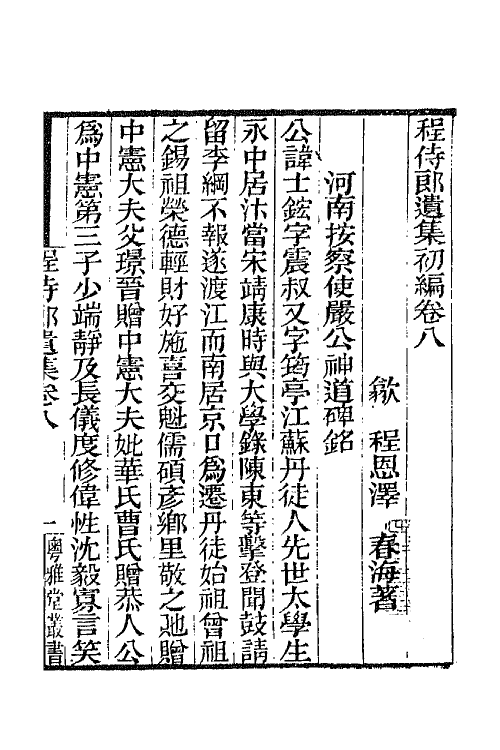 程侍郎遺集初編卷八
歙 程恩澤 春海著
河南按察使嚴公神道碑銘
公諱士鋐字震叔又字筠亭江蘇丹徒人先世太學生
永中居汴當宋靖康時與大學錄陳東等擊登聞鼓請
留李綱不報遂渡江而南居京口爲遷丹徒始祖曾祖
之錫祖榮德輕財好施喜交魁儒碩彥鄉里敬之貤贈
中憲大夫父璟晉贈中憲大夫妣華氏曹氏贈恭人公
爲中憲第三子少端靜及長儀度修偉性沈毅寡言笑
程侍郎遺集卷八
一 粵雅堂叢書